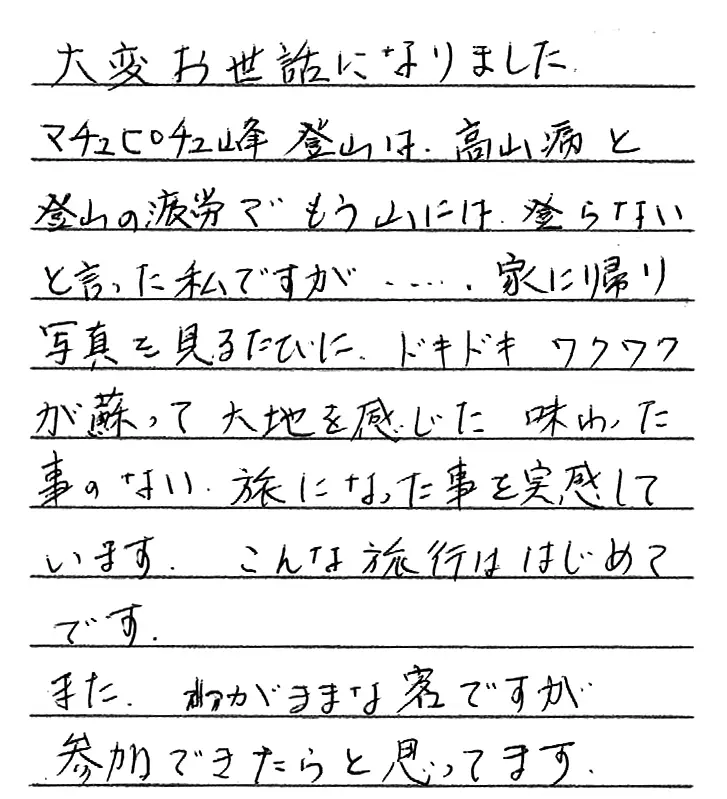 大変お世話になりました.
マチュピチュ峰 登山は.高山病と
登山の疲労で もう山には.登らない
と言った私ですが ・・・・・.家に帰り
写真を見るたびに.ドキドキ ワクワク
が蘇って 大地を感じた 味わった
事のない.旅になった事を実感して
います. こんな旅行は はじめて
です.
また. わがままな客ですが
参加できたらと思ってます.